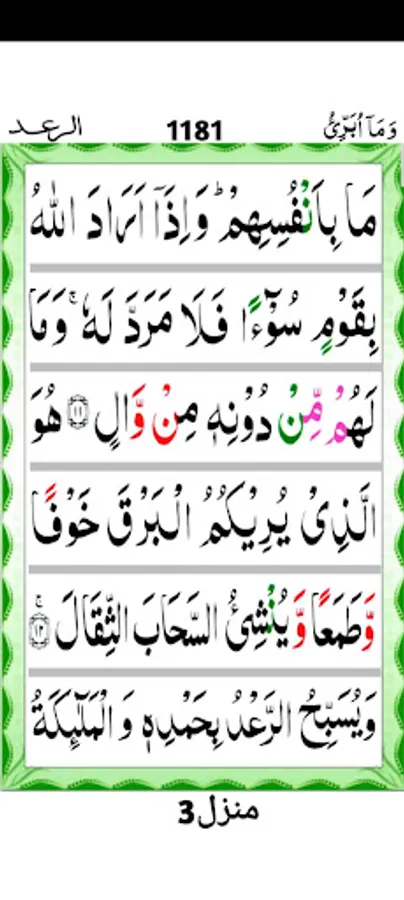 وَمَاۤ اُبَرِّئُ 1181 الرعد
مَا بِاَنْفُسِهِمْ ؕ وَاِذَاۤ اَرَادَ اللّٰهُ
بِقَوْمٍ سُوْٓءًا فَلَا مَرَدَّ لَهٗ ۚ وَمَا
لَهُمْ مِّنْ دُوْنِهٖ مِنْ وَّالٍ ۝۱۱ هُوَ
الَّذِىْ يُرِيْكُمُ الْبَرْقَ خَوْفًا
وَّطَمَعًا وَّيُنْشِئُ السَّحَابَ الثِّقَالَ ۝۱۲ۚ
وَيُسَبِّحُ الرَّعْدُ بِحَمْدِهٖ وَالْمَلٰٓئِكَةُ
منزل 3